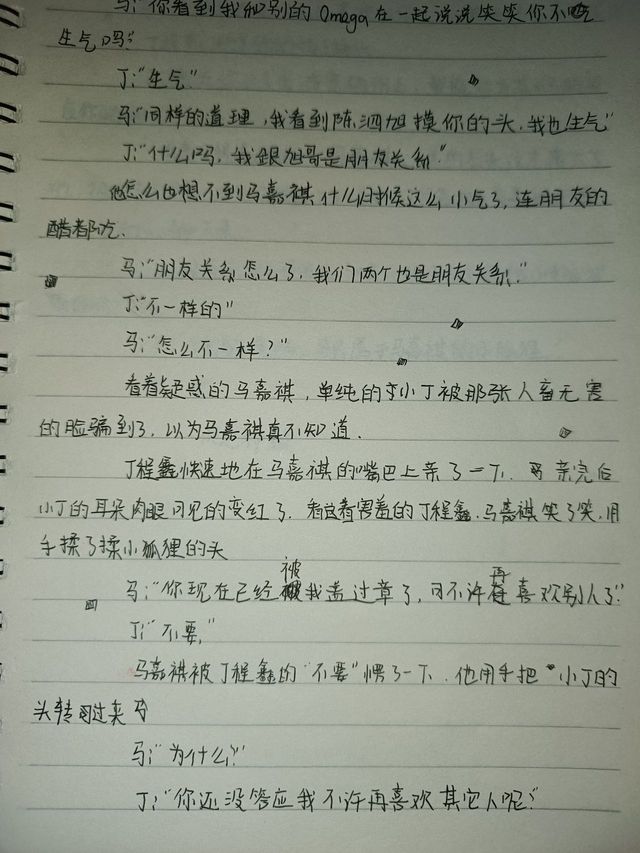 马:“你看到我和别的Omega在一起说说笑笑你不吃
生气吗?”
丁:“生气”
马:“同样的道理,我看到陈泗旭摸你的头,我也生气”
丁:“什么吗,我跟旭哥是朋友关系.”
他怎么也想不到马嘉祺什么时候这么小气了,连朋友的
醋都吃.
马:“朋友关系怎么了,我们两个也是朋友关系.”
丁:“不一样的”
马:“怎么不一样?”
看着疑惑的马嘉祺,单纯的小丁被那张人畜无害
的脸骗到了,以为马嘉祺真不知道.
丁程鑫快速地在马嘉祺的嘴巴上亲了一下.亲完后
小丁的耳朵肉眼可见的变红了.看这着害羞的丁程鑫.马嘉祺笑了笑,用
手揉了揉小狐狸的头
马:“你现在已经被我盖过章了,可不许再喜欢别人了”
丁:“不要,”
马嘉祺被丁程鑫的“不要”愣了一下.他用手把小丁的
头转过来
马:“为什么?”
丁:“你还没答应我不许再喜欢其它人呢?”